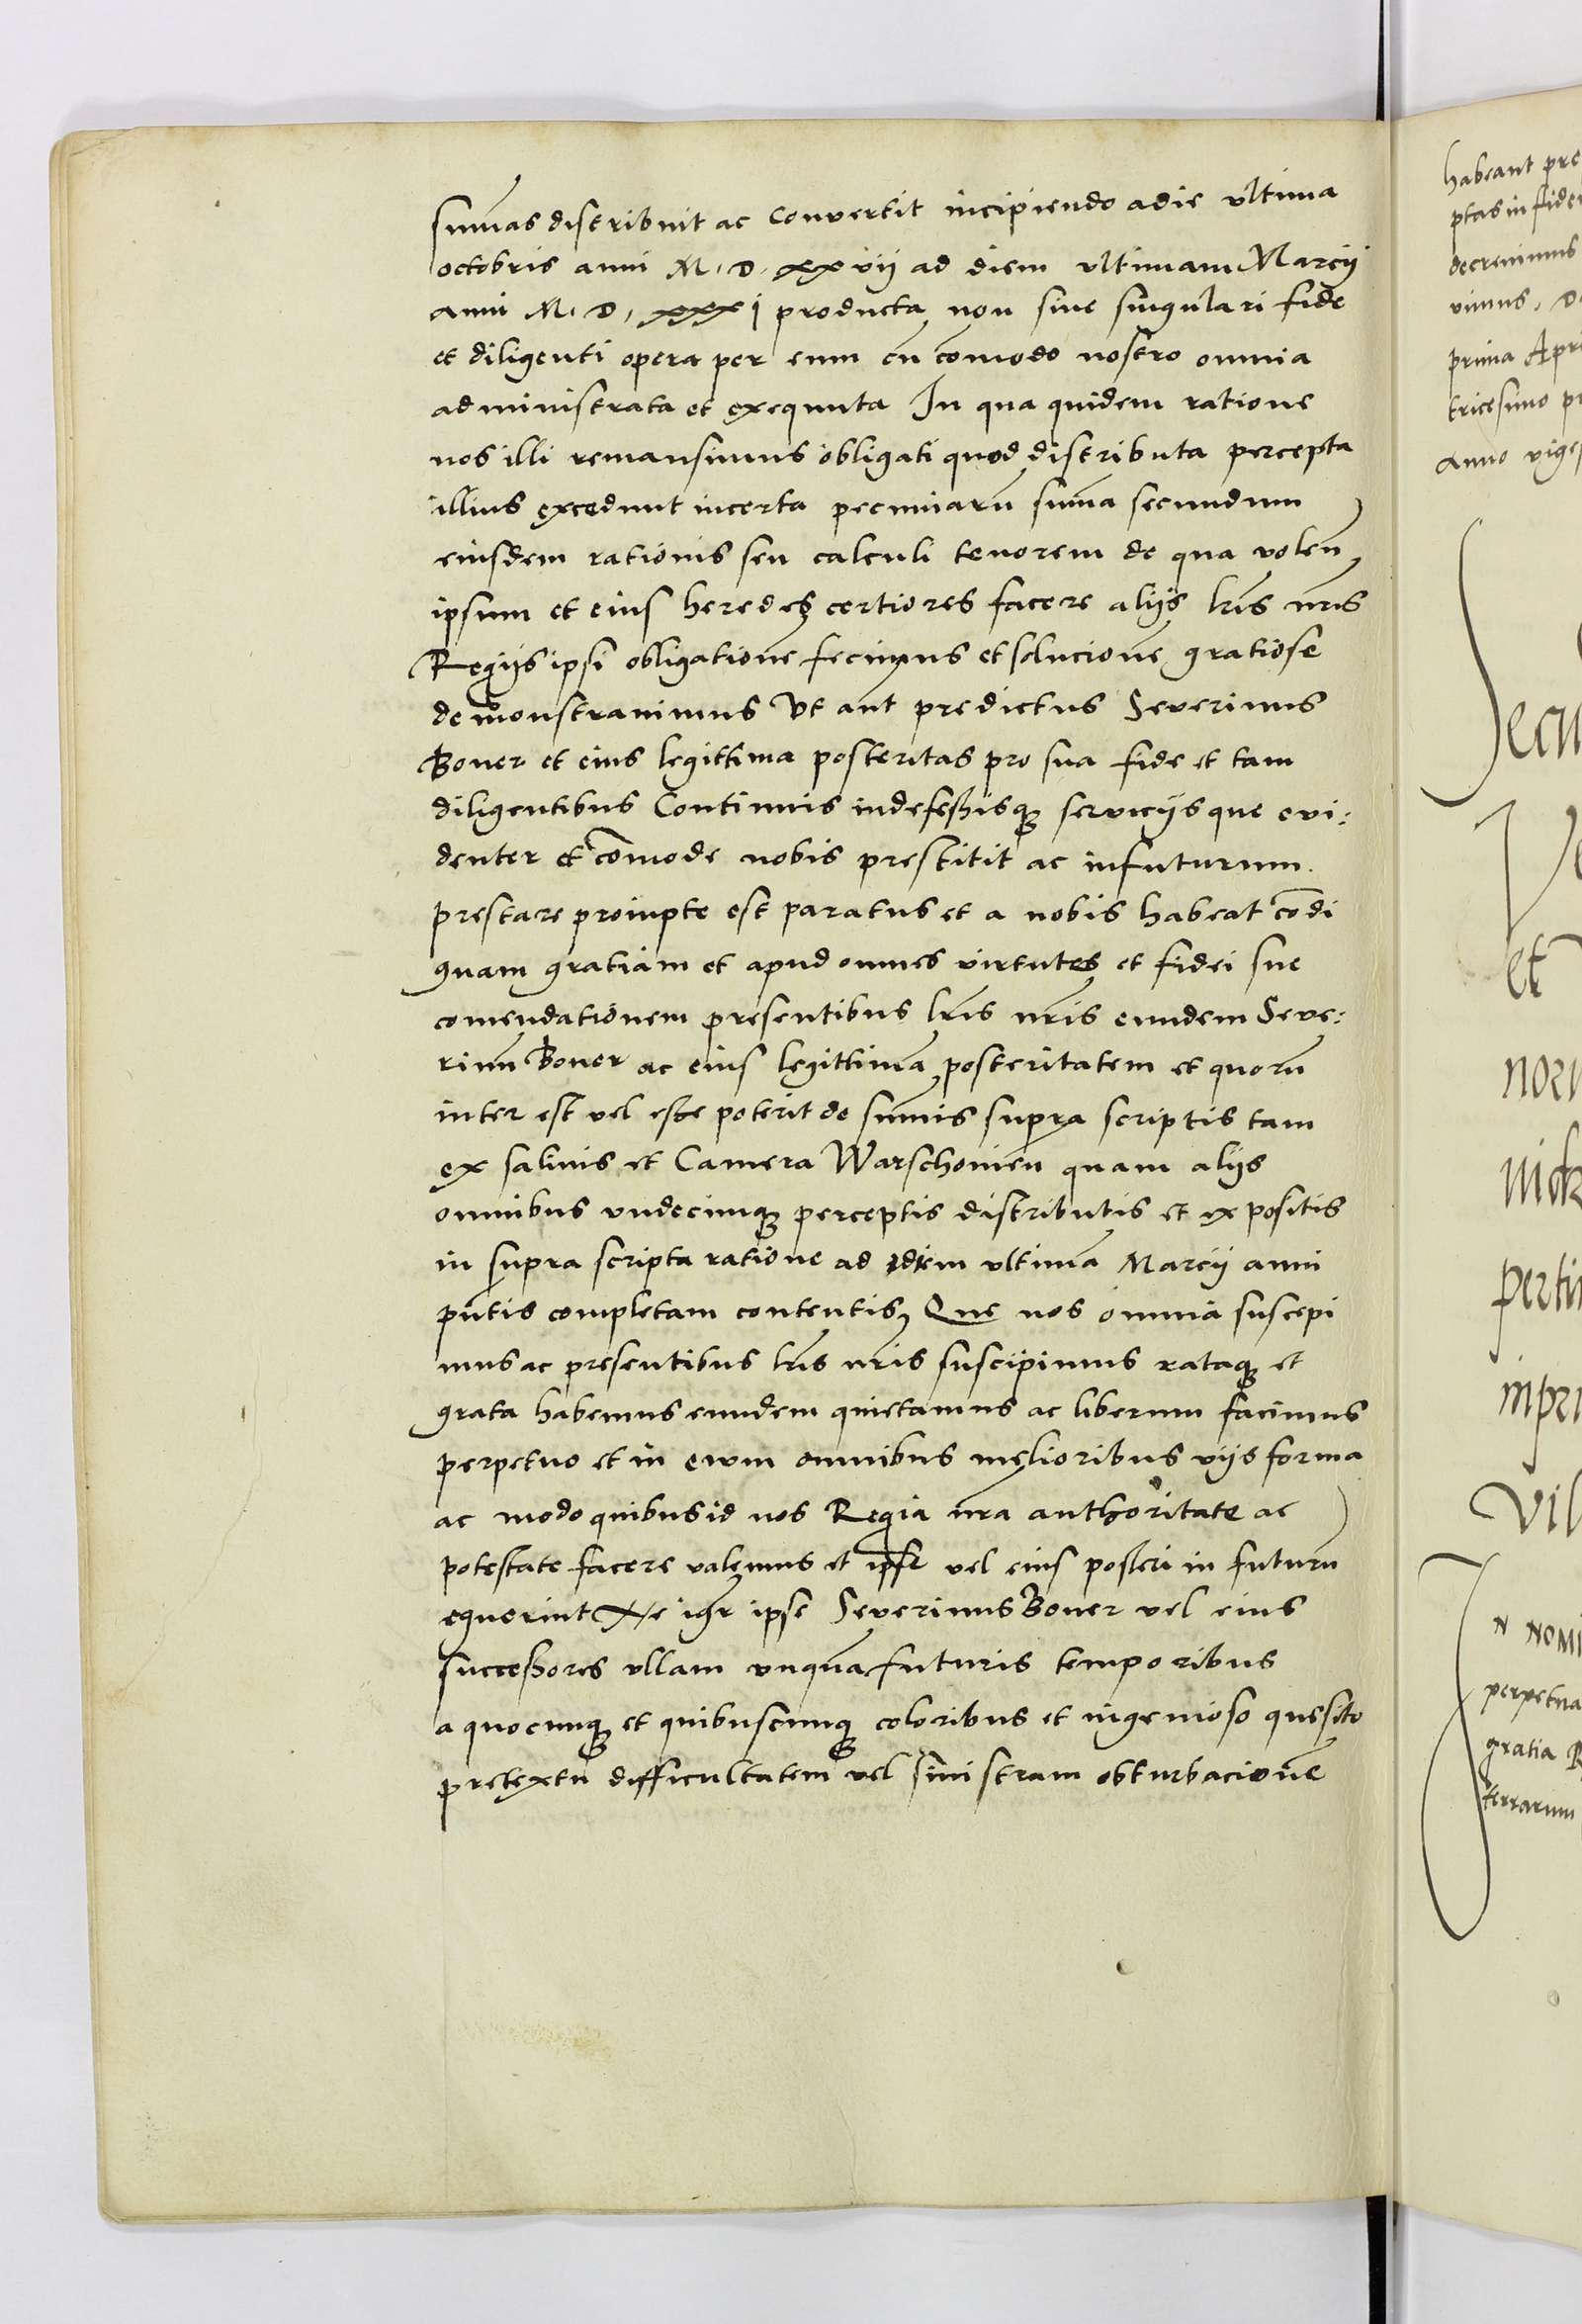 sum̄as distribuit ac Convertit incipiendo adie ultima
octobris anni M. D. xxvii ad diem ultimam Marcij
anni M. D. xxxi producta non sine singulari fide
et diligenti opera per eum cū com̄odo nostro omnia
administrata et exequuta In qua quidem ratione
nos illi remansimus obligati quod distributa percepta
illius excedunt incerta pecuniarū sum̄a secundum
eiusdem rationis seu calculi tenorem de qua volen̄
ipsum et eius heredes certiores facere alijs lr̄is nr̄is
Regijs ipsi obligationē fecimus et solucionē gratiose
demonstravimus Ut aut̄ predictus Severinus
Boner et eius legittima posteritas pro sua fide et tam
diligentibus Continuis indefessisq3 servicijs que evi:
denter et com̄ode nobis prestitit ac infuturum.
prestare prompte est paratus et a nobis habeat condi
gnam gratiam et apud omnes virtutes et fidei sue
comendationem presentibus lr̄is nr̄is eundem Seve:
rinū Boner ac eius legittimā posteritatem et quorū
inter est vel esse poterit de sum̄is supra scriptis tam
ex salinis et Camera Warschovien̄ quam alijs
omnibus undecunq3 perceptis distributis et ex positis
in supra scripta ratione ad diem ultimā Marcij anni
pn̄tis completam contentis, Que nos omnia suscepi
mus ac presentibus lr̄is nr̄is suscipimus rataq3 et
grata habemus eundem quietamus ac liberum facimus
perpetuo et in ewm omnibus melioribus vijs forma
ac modo quibus id nos Regia nr̄a authoritate ac
potestate facere valemus et ipse vel eius posteri in futurū
equerint Ne igr̄ ipse Severinus Boner vel eius
successores ullam unquā futuris temporibus
a quocunq3 et quibuscunq3 coloribus et ingenioso quesito
pretextu difficultatem vel sinistram obturbacionē
habeant pre
ptas in fide
decrevimus
vimus, D
prima Apri
tricesimo pr
Anno vige
Secu
et
noru
nick
perti
inpri
Vil
In NOMI
perpetua
gratia R
terrarum